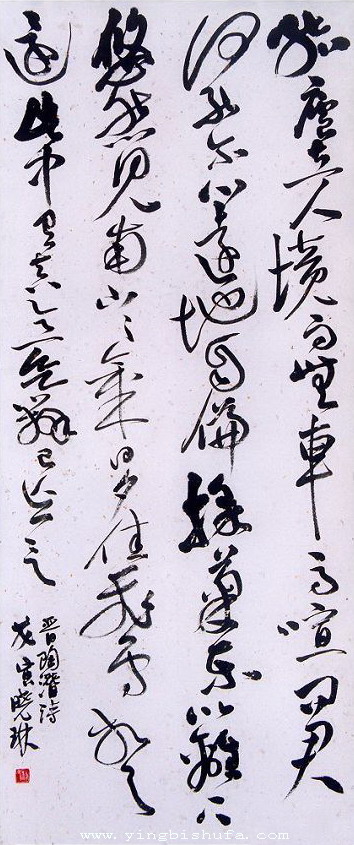 結廬在人境而無車馬喧问君
何能尔心遠地自偏採菊东籬下
悠然見南山山氣日夕佳飛鳥相与
還此中有真意欲辨已忘言
晋陶潜詩
戊寅晓琳
www.yingbishufa.com